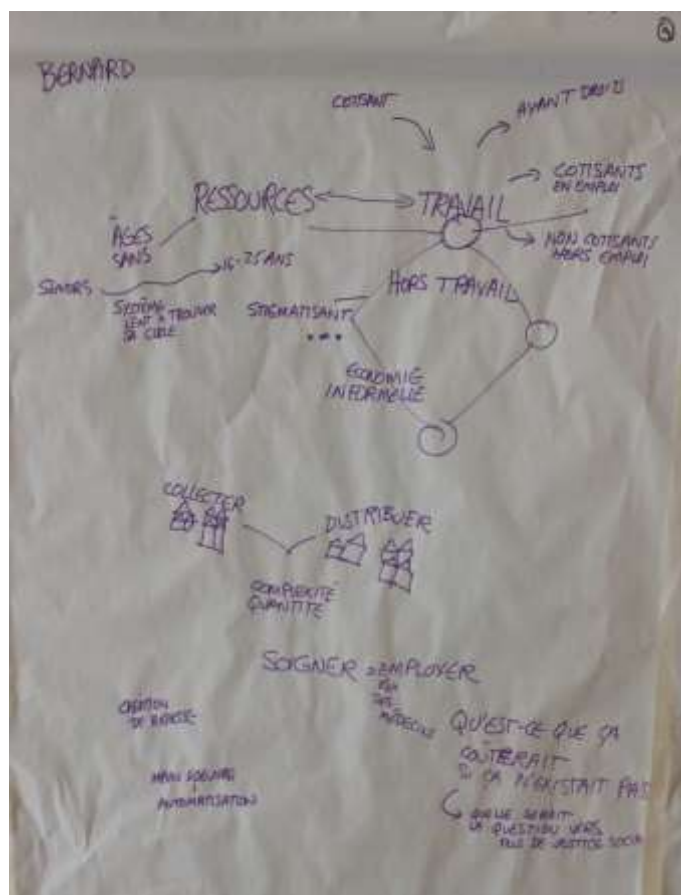 BERNARD
COTISANT
AYANT DROITS
RESSOURCES
TRAVAIL
COTISANTS
EN EMPLOI
NON COTISANTS
HORS EMPLOI
ÂGES
SANS
SENIORS
16-25 ANS
SYSTÈME
LENT À TROUVER
SA CIBLE
STIGMATISANT
...
HORS TRAVAIL
ÉCONOMIE
INFORMELLE
COLLECTER
DISTRIBUER
COMPLEXITÉ
QUANTITÉ
SOIGNER = EMPLOYER
DES
MÉDECINS
CRÉATION
DE RICHESSE
MAIN D'OEUVRE
AUTOMATISATION
QU'EST-CE QUE ÇA
COÛTERAIT
SI ÇA N'EXISTAIT PAS
QUELLE SERAIT
LA QUESTION VERS
PLUS DE JUSTICE SOCIA